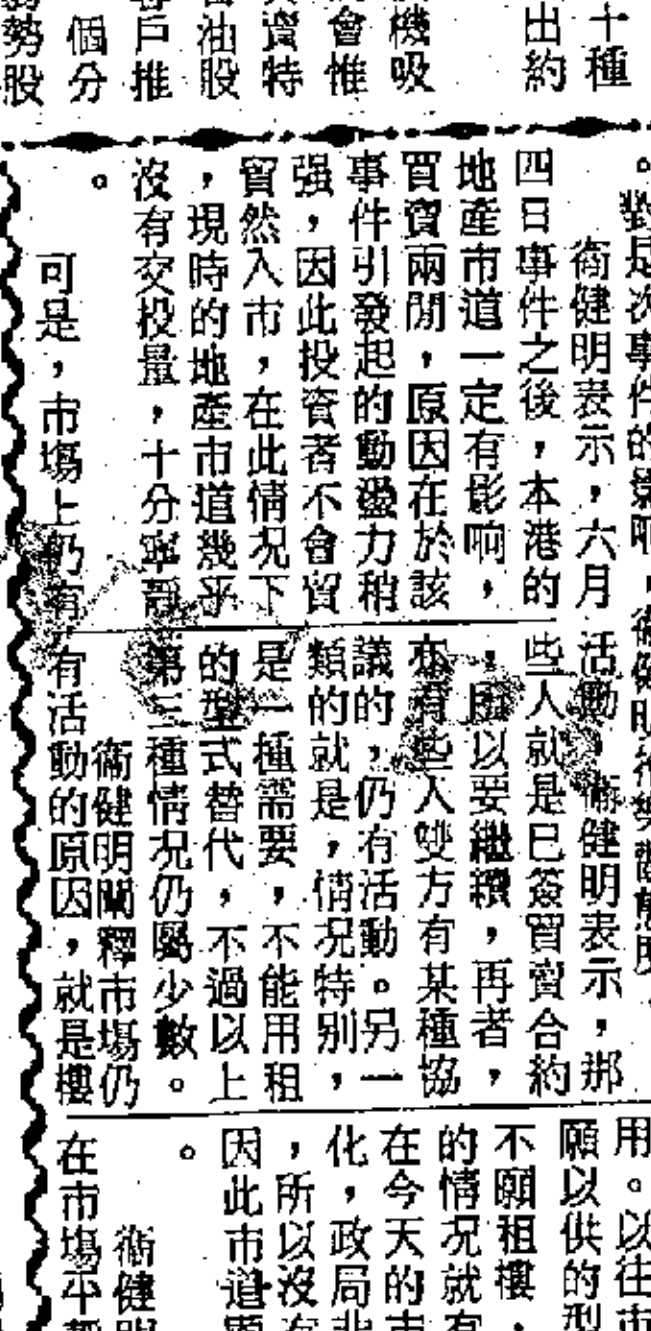 十種
出約
機吸
會惟
資特
油股
戶推
個分
勢股
。對是次事件的影响，衞健明
衞健明表示，六月
四日事件之後，本港的
地產市道一定有影响，
買賣兩閒，原因在於該
事件引發起的動盪力稍
强，因此投資者不會貿
貿然入市，在此情况下
，現時的地產市道幾乎
沒有交投量，十分寧靜
。
可是，市場上仍有
活動，衞健明表示，那
些人就是已簽買賣合約
，所以要繼續，再者，
亦有些人雙方有某種協
議的，仍有活動。另一
類的就是，情况特别，
是一種需要，不能用租
的型式替代，不過以上
第三種情况仍屬少數。
衞健明闡釋市場仍
有活動的原因，就是樓
用。以往市
願以供的型
不願租樓，
的情况就有
在今天的市
化，政局非
，所以沒有
因此市道
。
衞健明
在市場平靜